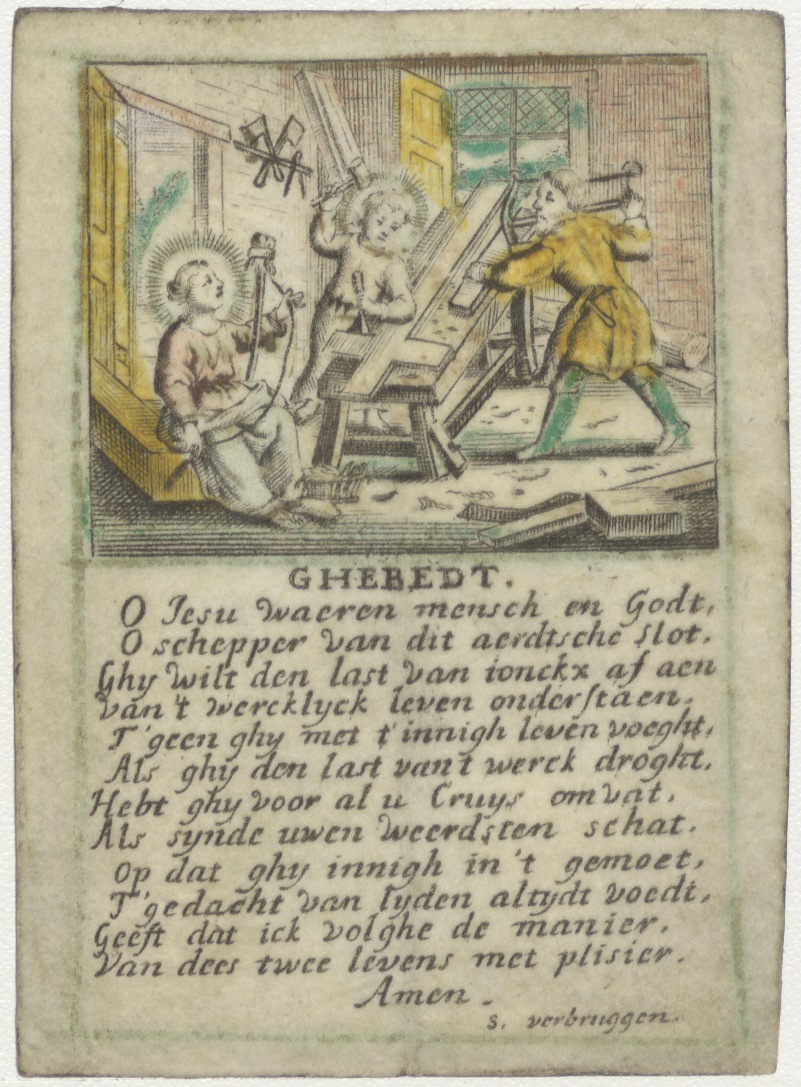 GHEBEDT.
O Jesu waeren mensch en Godt,
O schepper van dit aerdtsche slot.
Ghy wilt den last van ionckx af aen
Van't wercklyck leven onderstaen.
T'geen ghy met t'innigh leven voeght,
Als ghy den last van't werck droght.
Hebt ghy voor al u Cruys omvat,
Als synde uwen weerdsten schat.
Op dat ghy innigh in't gemoet,
T'gedacht van lyden altydt voedt,
Geeft dat ick volghe de manier,
Van dees twee levens met plisier.
Amen.
s. verbruggen.